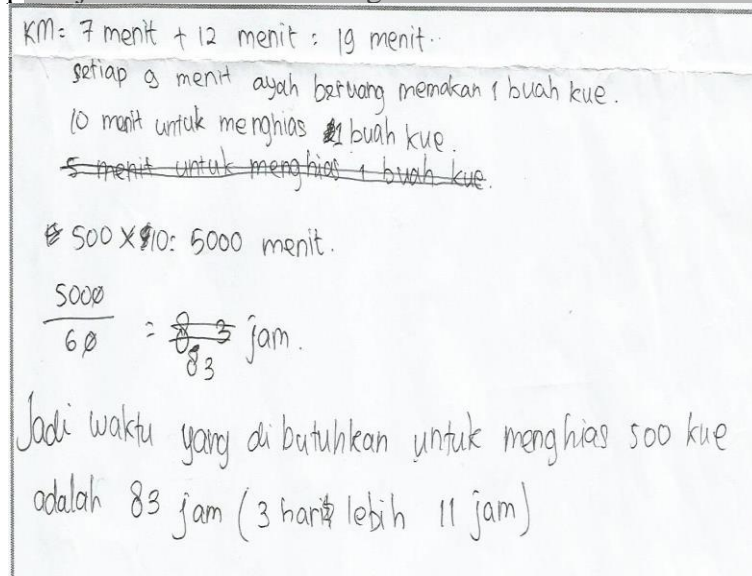 KM = 7 menit + 12 menit = 19 menit..
setiap 9 menit ayah beruang memakan 1 buah kue.
10 menit untuk menghias 1 buah kue.
5 menit untuk menghias 1 buah kue.
500 x 10 = 5000 menit.
5000
60
= 8 3 jam.
83
Jadi waktu yang di butuhkan untuk menghias 500 kue
adalah 83 jam (3 hari lebih 11 jam)